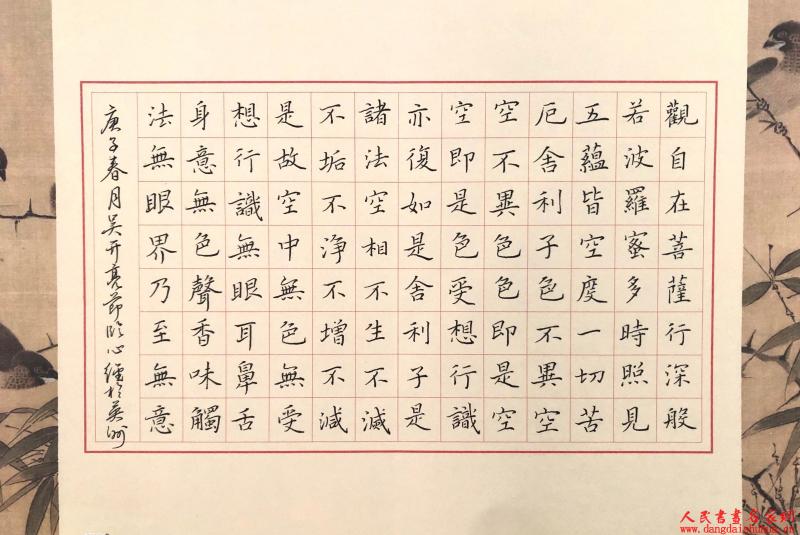 觀自在菩薩行深般
若波羅蜜多時照見
五蘊皆空度一切苦
厄舍利子色不異空
空不異色色即是空
空即是色受想行識
亦復如是舍利子是
諸法空相不生不滅
不垢不淨不增不減
是故空中無色無受
想行識無眼耳鼻舌
身意無色聲香味觸
法無眼界乃至無意
庚子春月吴开亮節临心經於英州
人民書畫名家網